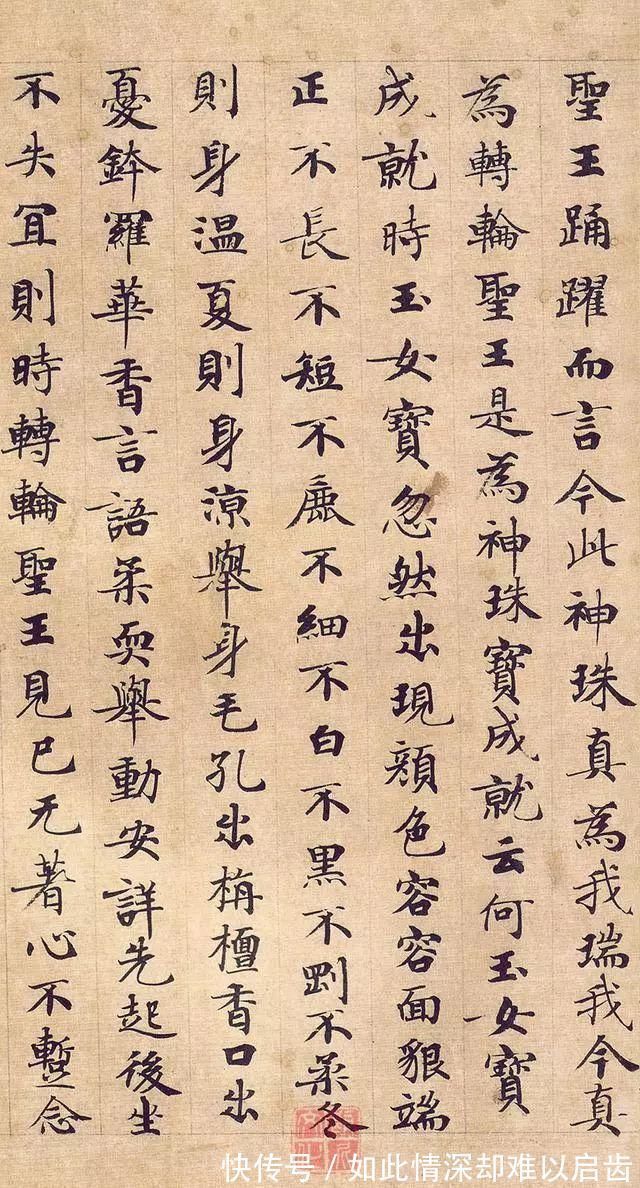 聖王踊躍而言今此神珠真為我瑞我今真
為轉輪聖王是為神珠寶成就云何玉女寶
成就時玉女寶忽然出現顏色容容面貌端
正不長不短不麁不細不白不黑不剛不柔冬
則身溫夏則身涼舉身毛孔出栴檀香口出
憂鉢羅華香言語柔耎舉動安詳先起後坐
不失冝則時轉輪聖王見已无著心不蹔念
快传号/如此情深却难以启齿